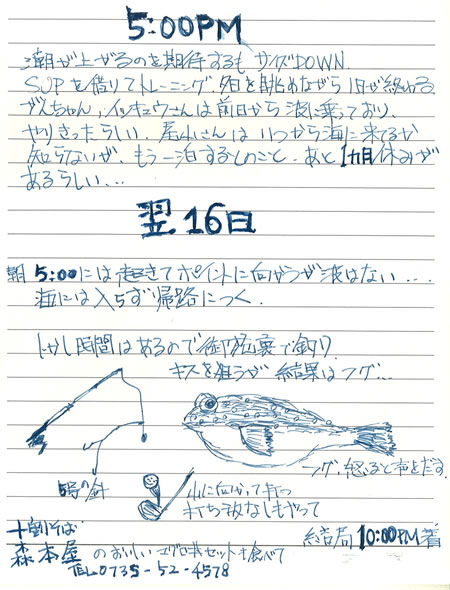 5:00PM
潮が上がるのを期待するも サイズDOWN.
SUPを借りてトレーニング. 夕日を眺めながら1日が終わる
げんちゃん, イッキュウさんは前日から波に乗っており、
やりきったらしい. 尾山さんは いつから海に来てるか
知らないが、もう一泊するとのこと. あと 1ヵ月 休みが
あるらしい...
翌16日
朝 5:00には起きてポイントに向かうが波はない...
海には入らず帰路につく.
しかし時間はあるので御施裏で釣り.
キスを狙うが 結果はフグ...
5号の針
山に向かって打つ
打ち放なしもやって
フグ、怒ると声をだす.
十割そば
森本屋 のおいしい セットを食べて
TEL 0735-52-4578
結局 10:00PM着